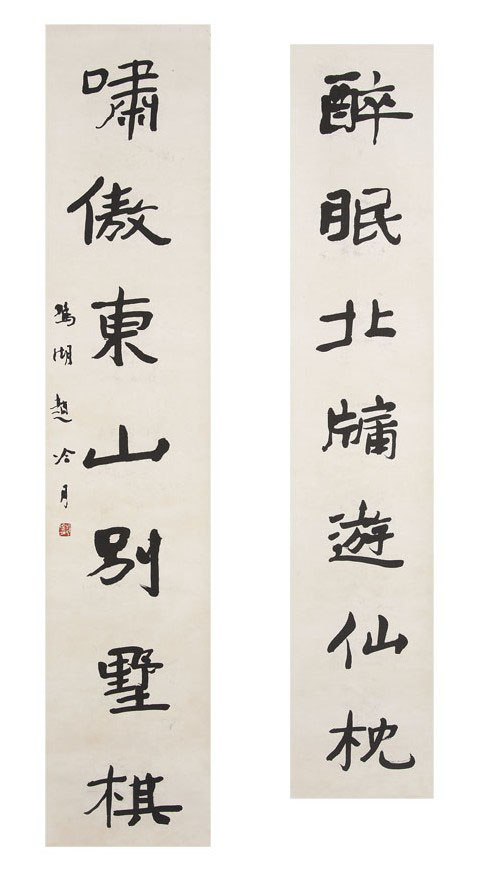 醉眠北牖遊仙枕
嘯傲東山別墅棋
鴛湖趙冷月